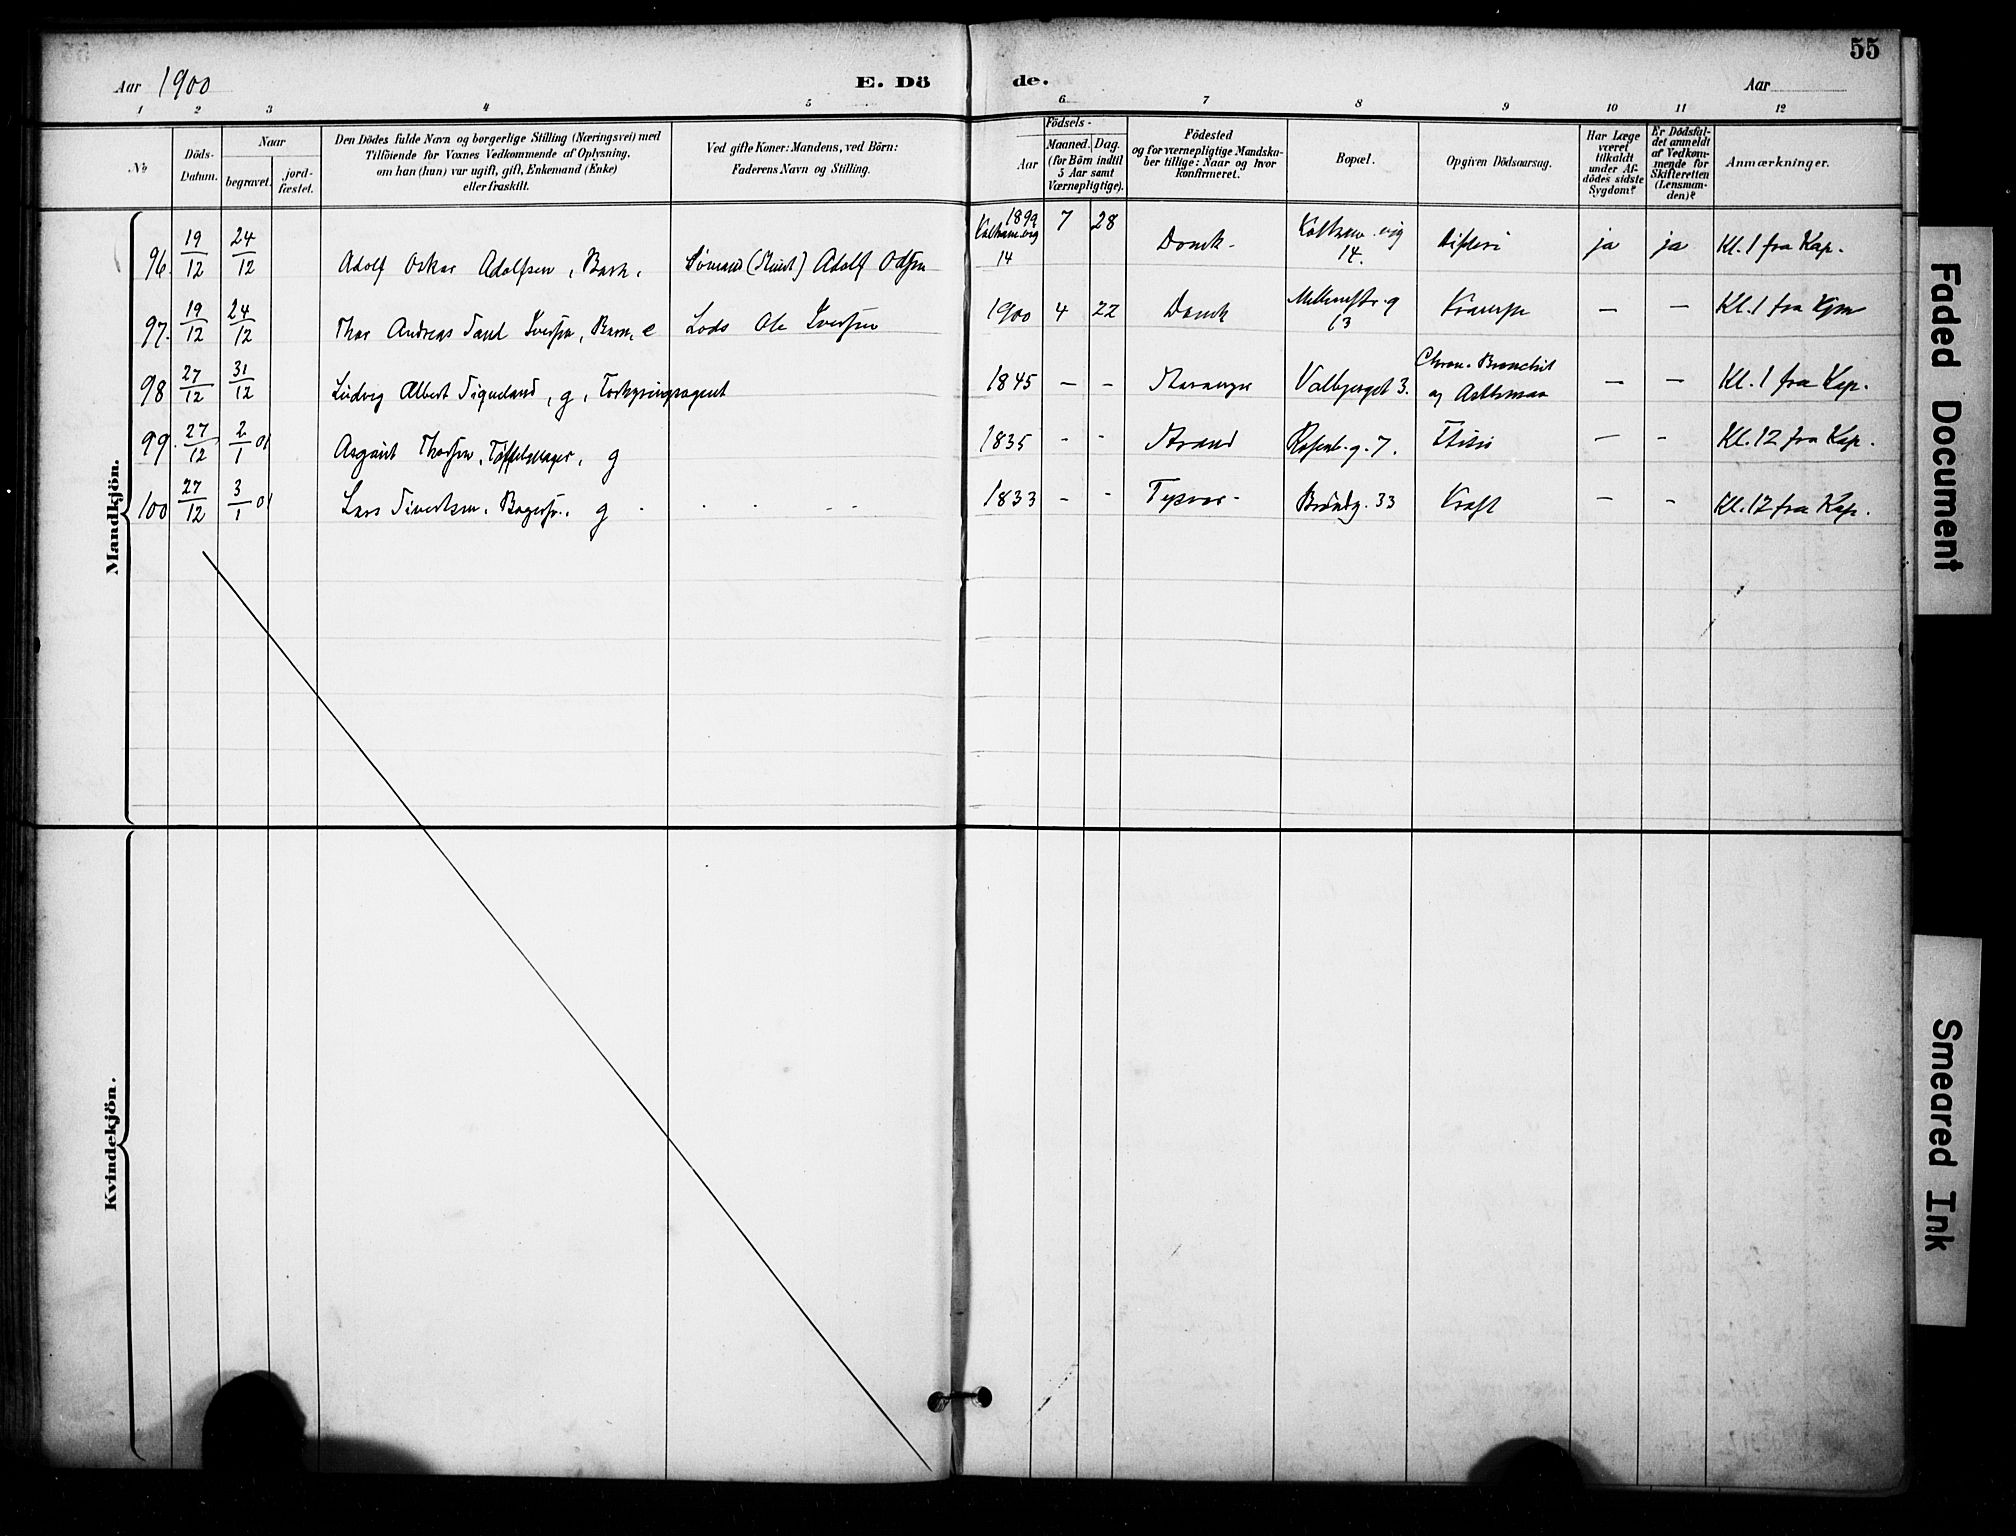 55
Aar 1900
E. Dö
de.
Aar
1 2 3 4 5 6 7 8 9 10 11 12
No
Döds-
Datum.
Naar
begravet.
jord-
fæstet.
Den Dödes fulde Navn og borgerlige Stilling (Næringsvei) med
Tilföiende for Voxnes Vedkommende af Oplysning,
om han (hun) var ugift, gift, Enkemand (Enke)
eller fraskilt.
Ved gifte Koner: Mandens, ved Börn:
Faderens Navn og Stilling.
Födsels-
Aar
Maaned.
Dag.
(for Börn indtil
5 Aar samt
Værnepligtige).
Födested
og for værnepligtige Mandska-
ber tillige: Naar og hvor
konfirmeret.
Bopæl.
Opgiven Dödsaarsag.
Har Læge
været
tilkaldt
under Af-
dödes sidste
Sygdom?
Er Dödsfal-
det anmeldt
af Vedkom-
mende for
Skifteretten
(Lensman-
den)?
Anmærkninger.
Mandkjön.
96. 19/12 24/12 Adolf Oskar Adolfsen, Barn, Sömand Adolf 1899 14 7 28 14. Difteri ja ja Kl. 1 fra Kap.
97. 19/12 24/12 Thor Andreas Iversen, Barn, e Lods Ole Iversen 1900 4 22 13 — — Kl. 1 fra
98 27/12 31/12 Ludvig Albert Tiqueland, g, 1845 — - Stavanger Valbjerget 3. Chron. Bronchit
og Asthma — — Kl. 1 fra Kap.
99. 27/12 2/1 01 Asgaut Thorsen, g 1835 - - Strand Rosenb. g. 7. — - Kl. 12 fra Kap.
100 27/12 3/1 01 Lars Sivertsen, g 1833 - - Tysvær - 33 Kræft - - Kl. 12 fra Kap.
Kvindekjön.
Faded Document
Smeared Ink